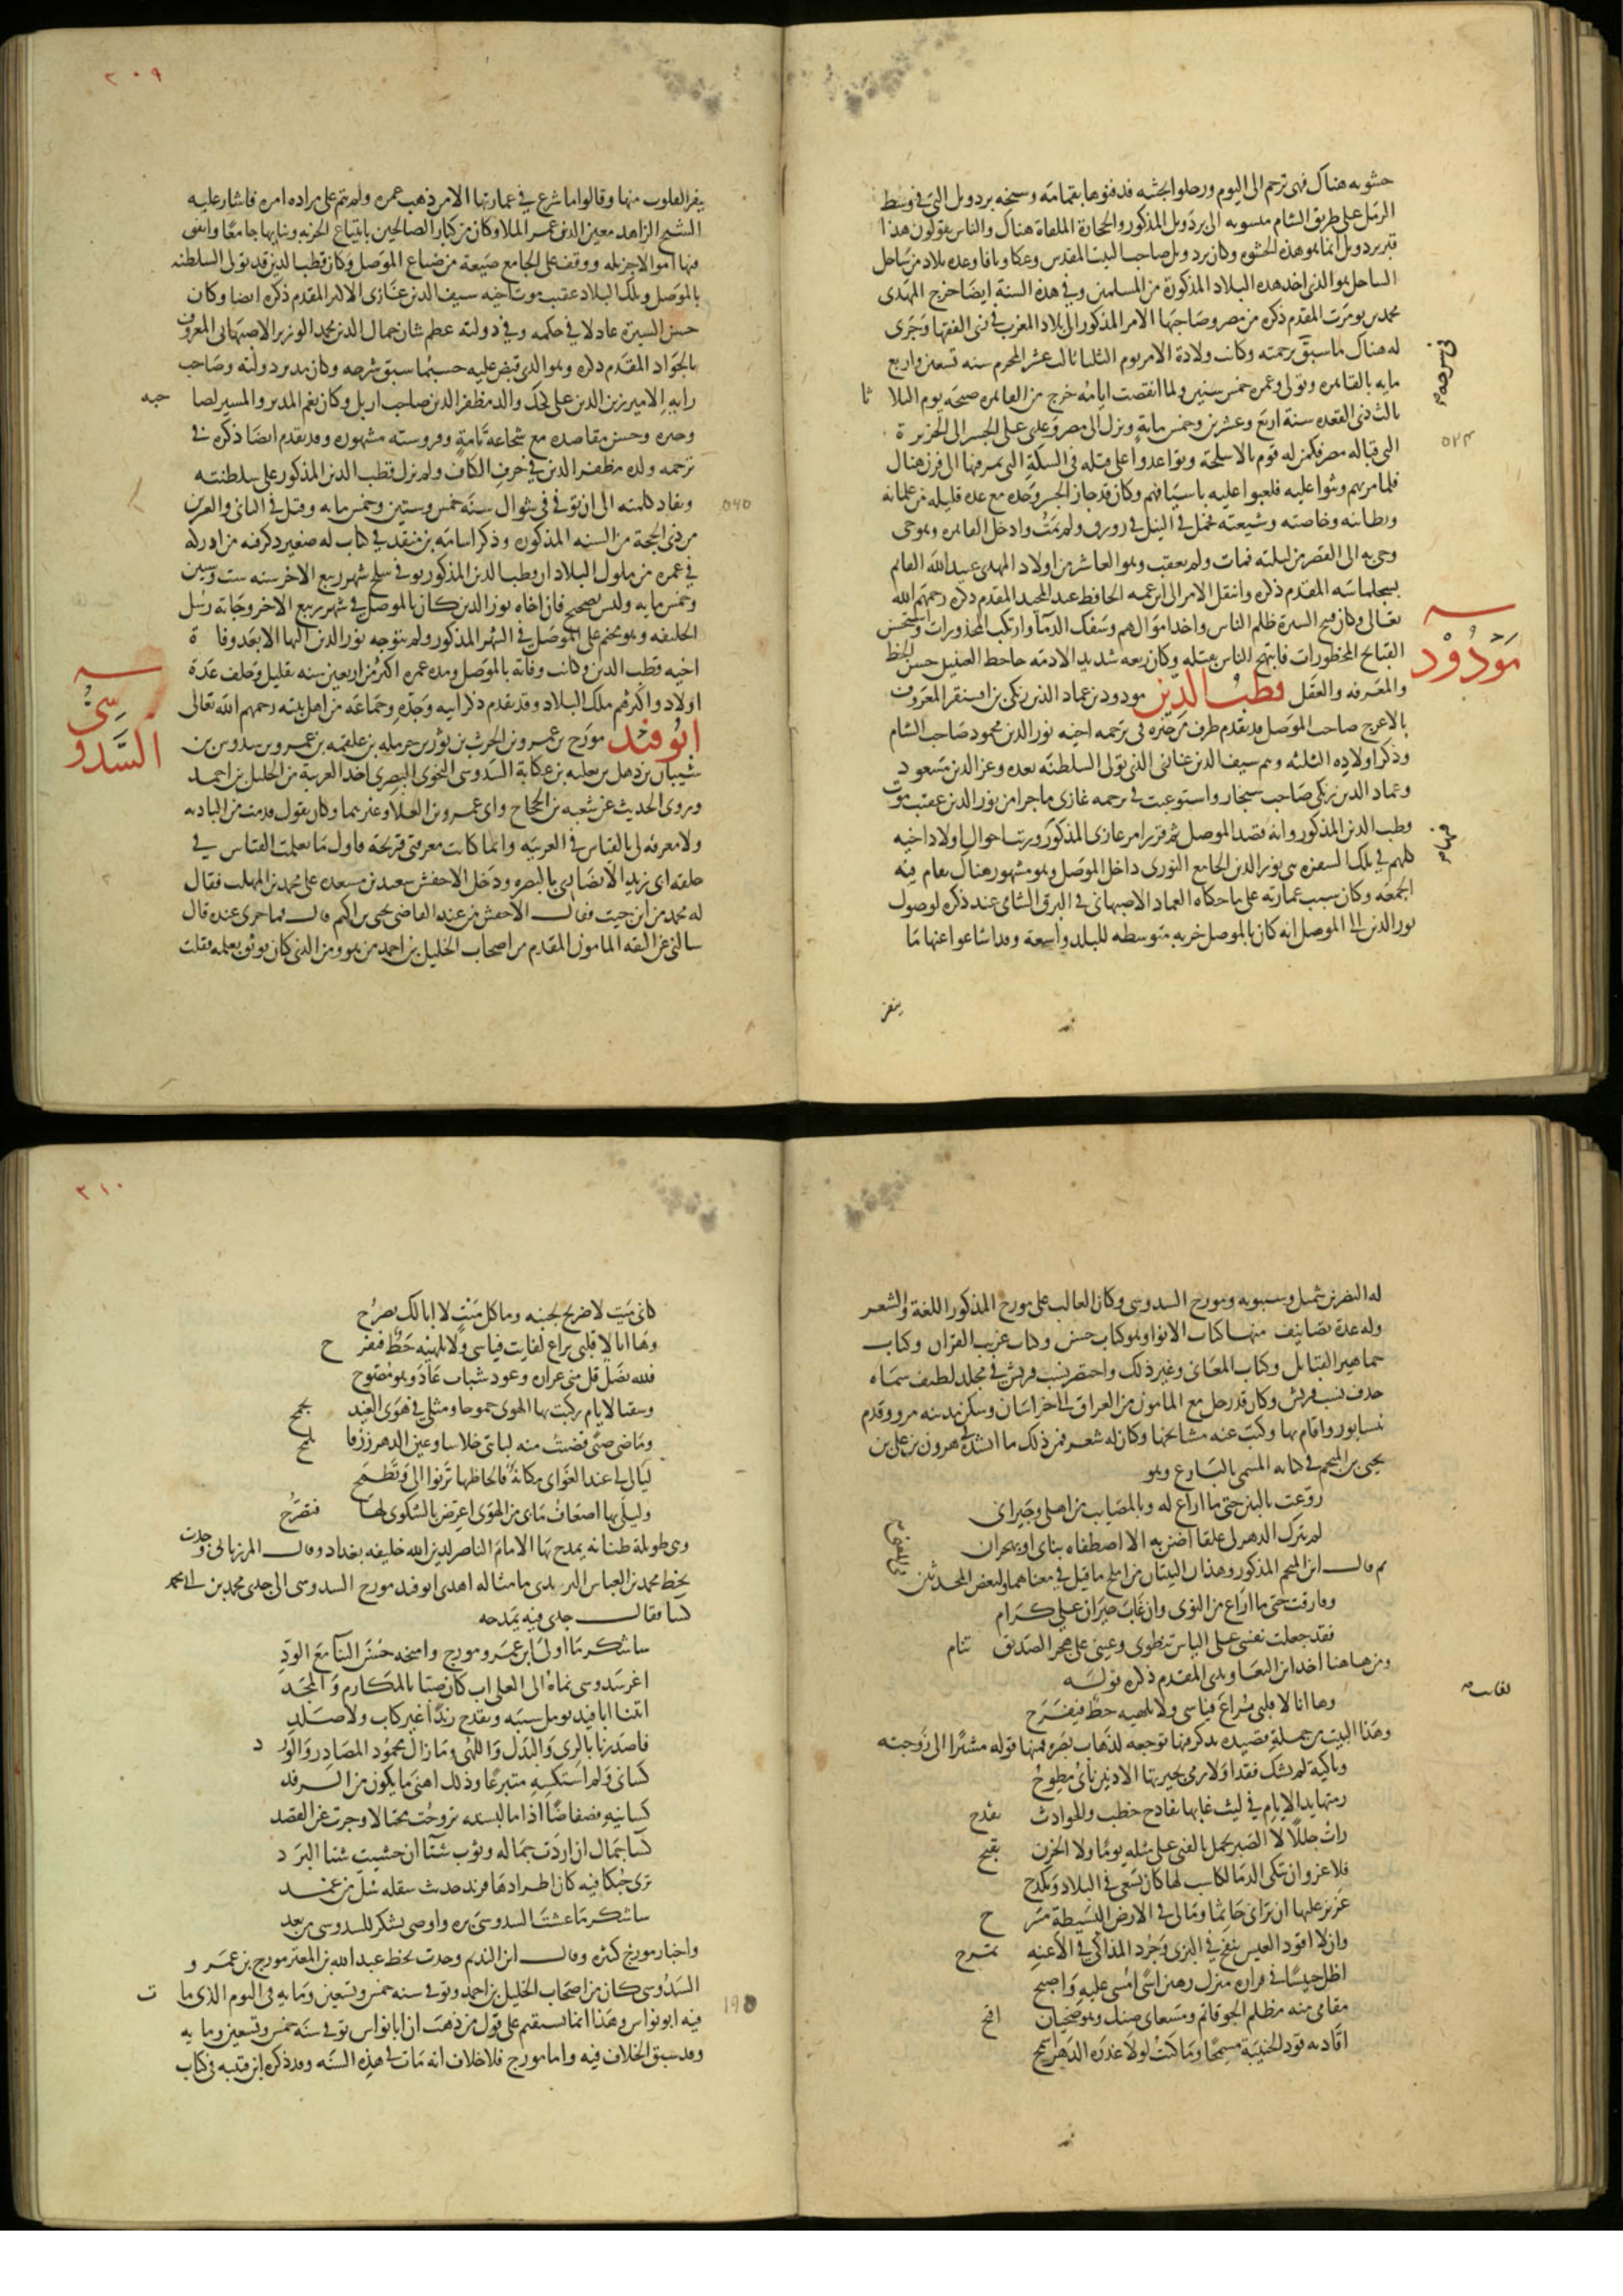 حشوبه هناك فهى ترجم الى اليوم ورحلوا بجثته فدفنوها بقمامه وسبخه بردويل التى فى وسط
الرمل على طريق الشام منسوبه الى بردويل المذكور والحجارة الملقاة هناك والناس يقولون هذا
قبر بردويل انما هو هذه الحشوه وكان بردويل صاحب البيت المقدس وعكا ويافا وعده بلاد من ساحل
الساحل وهو الذى اخذ هذه البلاد المذكورة من المسلمين وفى هذه السنة ايضا خرج المهدى
محمد بن تومرت المقدم ذكره من مصر وصاحبها الامر المذكور الى بلاد المغرب فى زى الفقها وجرى
له هناك ما سبق فى ترجمته وكانت ولادة الامر يوم الثلثا ثالث عشر المحرم سنه تسعين واربع
مايه بالقاهره وتولى وعمره خمس سنين ولما انقضت ايامه خرج من القاهره صبيحة يوم الثلاثا
ثالث ذى القعده سنة اربع وعشرين وخمس مايه ونزل الى مصر وعدى على الجسر الى الجزيرة
التى قباله مصر فكمن له قوم بالاسلحة وتواعدوا على قتله فى السكة التى يمر فيها الى فرن هناك
فلما مر بهم وثبوا عليه فلعبوا عليه باسيافهم وكان قد جاز الجسر وحده مع عده قليله من غلمانه
وبطانته وخاصته وشيعته فحمل فى النيل فى زورق ولم يمت وادخل القاهره وهو حى
وجى به الى القصر من ليلته فمات ولم يعقب وهو العاشر من اولاد المهدى عبيد الله القائم
بسجلماسه المقدم ذكره وانتقل الامر الى ابن عمه الحافظ عبد المجيد المقدم ذكره رحمهم الله
تعالى وكان قبيح السيرة ظلم الناس واخذ اموالهم وسفك الدما وارتكب المحذورات واستحسن
القبايح المحظورات فابتهج الناس بقتله وكان ربعه شديد الادمه جاحظ العينين حسن الخط
والمعرفه والعقل قطب الدين مودود بن عماد الدين زنكى بن اقسنقر المعروف
مودود
بالاعرج صاحب الموصل قد تقدم طرف من خبره فى ترجمه اخيه نور الدين محمود صاحب الشام
وذكر اولاده الثلثه وهم سيف الدين غازى الذى تولى السلطنه بعده وعز الدين مسعود
وعماد الدين زنكى صاحب سنجار واستوعبت فى ترجمه غازى ما جرا من نور الدين عقيب موت
قطب الدين المذكور وانه قصد الموصل ثم قرر امر غازى المذكور ورتب احوال اولاد اخيه
كلهم فى تلك السفره بنى نور الدين الجامع النورى داخل الموصل وهو مشهور هناك يقام فيه
الجمعه وكان سبب عمارته على ما حكاه العماد الاصبهانى فى البرق الشامى عند ذكره لوصول
نور الدين الى الموصل انه كان بالموصل خربه متوسطه للبلد واسعة وقد اشاعوا عنها ما
ينفر
٢٠٩
ينفر القلوب منها وقالوا ما شرع فى عمارتها الا من ذهب عمره ولم يتم على مراده امره فاشار عليه
الشيخ الزاهد معين الدين عمر الملا وكان من كبار الصالحين بابتياع الخربه وبنايها جامعا وانفق
فيها اموالا جزيله ووقف على الجامع ضيعة من ضياع الموصل وكان قطب الدين قد تولى السلطنه
بالموصل وتلك البلاد عقيب موت اخيه سيف الدين غازى الاكبر المقدم ذكره ايضا وكان
حسن السيرة عادلا فى حكمه وفى دولته عظم شان جمال الدين محمد الوزير الاصبهانى المعروف
بالجواد المقدم ذكره وهو الذى قبض عليه حسبما سبق شرحه وكان مدبر دولته وصاحب
رايه الامير زين الدين على كجك والد مظفر الدين صاحب اربل وكان نعم المدبر والمسير لصلاحه
وخيره وحسن مقاصده مع شجاعه تامة وفروسته مشهوره وقد تقدم ايضا ذكره فى
ترجمه ولده مظفر الدين فى حرف الكاف ولم يزل قطب الدين المذكور على سلطنته
ونفاد كلمته الى ان توفى فى شوال سنة خمس وستين وخمس مايه وقيل فى الثانى والعشرين
من ذى الحجة من السنه المذكوره وذكر اسامه بن منقذ فى كتاب له صغير ذكر فيه من ادركه
فى عمره من ملوك البلاد ان قطب الدين المذكور توفى سلخ شهر ربيع الاخر سنه ست وستين
وخمس مايه وليس بصحيح فان اخاه نور الدين كان بالموصل فى شهر ربيع الاخر وجاته رسل
الخليفه وهو مخيم على الموصل فى الشهر المذكور ولم يتوجه نور الدين اليها الا بعد وفاة
اخيه قطب الدين وكانت وفاته بالموصل ومده عمره اكثر من اربعين سنه بقليل وخلف عدة
اولاد واكثرهم ملك البلاد وقد تقدم ذكر ابيه وجده وجماعه من اهل بيته رحمهم الله تعالى
ابو فيد مورج بن عمرو بن الحرث بن ثور بن حرمله بن علقمه بن عمرو بن سدوس بن
السدوسى
شيبان بن ذهل بن ثعلبه بن عكابة السدوسى النحوى البصرى اخذ العربية من الخليل بن احمد
وروى الحديث عن شعبه بن الحجاج وابى عمرو بن العلا وغيرهما وكان يقول قدمت من الباديه
ولا معرفه لى بالقياس فى العربيه وانما كانت معرفتى قريحة فاول ما تعلمت القياس فى
حلقه ابى زيد الانصارى بالبصره ودخل الاخفش سعيد بن مسعده على محمد بن المهلب فقال
له محمد من اين جيت فقال الاخفش من عند القاضى يحيى بن اكثم قال فما جرى عنده قال
سالنى عن الثقه المامون المقدم من اصحاب الخليل بن احمد من هو ومن الذى كان يوثق بعلمه فقلت
له النضر بن شميل وسيبويه ومورج السدوسى وكان الغالب على مورج المذكور اللغة والشعر
وله عدة تصانيف منها كتاب الانوا وهو كتاب حسن وكتاب غريب القران وكتاب
جماهير القبايل وكتاب المعانى وغير ذلك واختصر نسب قريش فى مجلد لطيف سماه
حذف نسب قريش وكان قد رحل مع المامون من العراق الى خراسان وسكن مدينه مرو وقدم
نيسابور واقام بها وكتب عنه مشايخها وكان له شعر فمن ذلك ما انشده هرون بن على بن
يحيى بن المنجم فى كتابه المسمى بالبارع وهو
روعت بالبين حتى ما اراع له وبالمصايب من اهلى وجيرانى
لم يترك الدهر لى علقا اضن به الا اصطفاه بناى او بهجران
ثم قال ابن المنجم المذكور وهذان البيتان من املح ما قيل فى معناهما ولبعض المحدثين
وفارقت حتى ما اراع من النوى وان غاب جيران على كرام
فقد جعلت نفسى على الياس تنطوى وعينى على هجر الصديق تنام
ومن هاهنا اخذ ابن التعاويذى المقدم ذكره قوله
وها انا لا قلبى يراع فياسى ولا يلهيه حظ فيفرح
وهذا البيت من جملة قصيده يذكر فيها توجعه لذهاب بصره فمنها قوله مشيرا الى زوجته
وباكية لم تشك فقدا ولا رمى بجيرتها الادنين ناى مطوح
رمتها يد الايام فى ليث غابها بفادح خطب والحوادث تفدح
رات جللا لا الصبر يجمل بالفتى على مثله يوما ولا الحزن يقبح
فلا غرو ان تبكى الدما لكاسب لها كان يسعى فى البلاد ويكدح
عزيز عليها ان ترانى جاثما ومالى فى الارض البسيطة مسرح
وان لا اقود العيس تنفخ فى البرى وجرد المذاكى فى الاعنه تمرح
اظل حبيسا فى قراره منزل رهين اسى امسى عليه واصبح
مقامى منه مظلم الجو قاتم ومسعاى ضنك وهو ضحيان افيح
اقاد به قود الجنيبة مسمحا وما كنت لولا غدره الدهر اسمح
٣١٠
كانى ميت لا ضريح لجنبه وما كل ميت لا ابا لك يضرح
وها انا لا قلبى يراع لفايت فياسى ولا يلهيه حظ فيفرح
فلله نصل فل منى غراره وعود شباب عاد وهو مصوح
وسقيا لايام ركبت بها الهوى جموحا ومثلى فى هوى الغيد يجمح
وماضى صبى قضيت منه لبانتى خلاسا وعين الدهر زرقا تلمح
ليالى لى عند الغوانى مكانة فالحاظها ترنوا الى وتطمح
وليلى بها اضعاف مابى من الهوى اعرض بالشكوى لها فتصرح
وهى طويلة طنانه يمدح بها الامام الناصر لدين الله خليفه بغداد وقال المرزبانى وجدت
بخط محمد بن العباس اليزيدى ما مثاله اهدى ابو فيد مورج السدوسى الى جدى محمد بن ابى محمد
كسا فقال جدى فيه يمدحه
ساشكر ما اولى ابن عمرو مورج وامنحه حسن الثنا مع الود
اغر سدوسى نماه الى العلى اب كان صبا بالمكارم والمجد
اتينا ابا فيد نومل سيبه ونقدح زندا غير كاب ولا صلد
فاصدرنا بالرى والبذل واللهى وما زال محمود المصادر والورد
كسانى ولم استكسه متبرعا وذلك اهنى ما يكون من الرفد
كسانيه فضفاضا اذا ما لبسته تروحت مختالا وجرت عن القصد
كسا جمال ان اردت جماله وثوب شتا ان خشيت شتا البرد
ترى حبكا فيه كان اطرادها فرند حديث صقله سل من غمد
ساشكر ما عشت السدوسى بره واوصى بشكر للسدوسى من بعد
واخبار مورج كثيره وقال ابن النديم وجدت بخط عبد الله بن المعتز مورج بن عمرو
السدوسى كان من اصحاب الخليل بن احمد وتوفى سنه خمس وتسعين ومايه فى اليوم الذى مات
فيه ابو نواس وهذا انما يستقيم على قول من ذهب ان ابا نواس توفى سنة خمس وتسعين ومايه
وقد سبق الخلاف فيه واما مورج فلا خلاف انه مات فى هذه السنه وقد ذكره ابن قتيبه فى كتاب